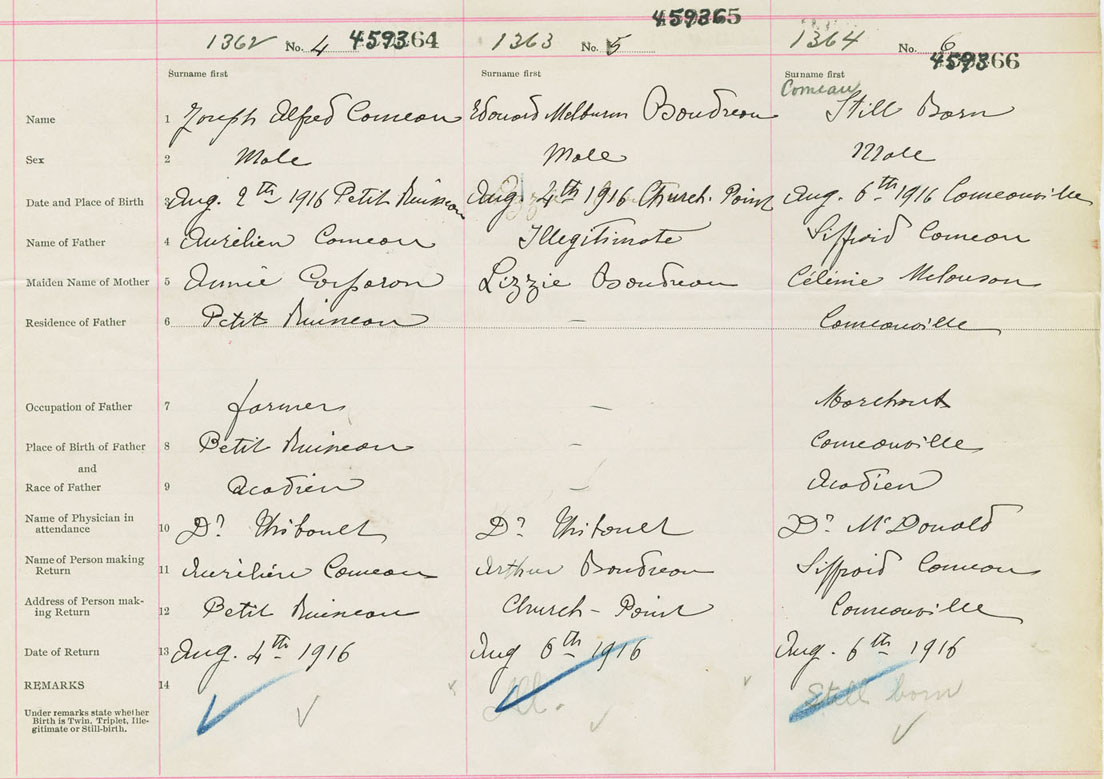 1362 No. 4 459364 1363 No. 5 459365 1364 No. 6 459366
Surname first Surname first Surname first
Comeau
Name 1 Joseph Alfred Comeau Edouard Melburn Boudreau Still Born
Sex 2 Male Male Male
Date and Place of Birth 3 Aug. 2th 1916 Petit Ruisseau Aug. 4th 1916 Church. Point Aug. 6th 1916 Comeauville
Name of Father 4 Aurélien Comeau Illegitimate Siffroid Comeau
Maiden Name of Mother 5 Annie Corporon Lizzie Boudreau Célénie
Residence of Father 6 Petit Ruisseau — Comeauville
Occupation of Father 7 farmer — Marchant
Place of Birth of Father 8 Petit Ruisseau — Comeauville
and
Race of Father 9 Acadien — Acadien
Name of Physician in
attendance 10 Dr Thibault Dr Thibault Dr McDonald
Name of Person making
Return 11 Aurélien Comeau Arthur Boudreau Siffroid Comeau
Address of Person mak-
ing Return 12 Petit Ruisseau Church-Point Comeauville
Date of Return 13 Aug. 4th 1916 Aug 6th 1916 Aug. 6th 1916
REMARKS 14 Ill. Still born
Under remarks state whether
Birth is Twin, Triplet, Ille-
gitimate or Still-birth.